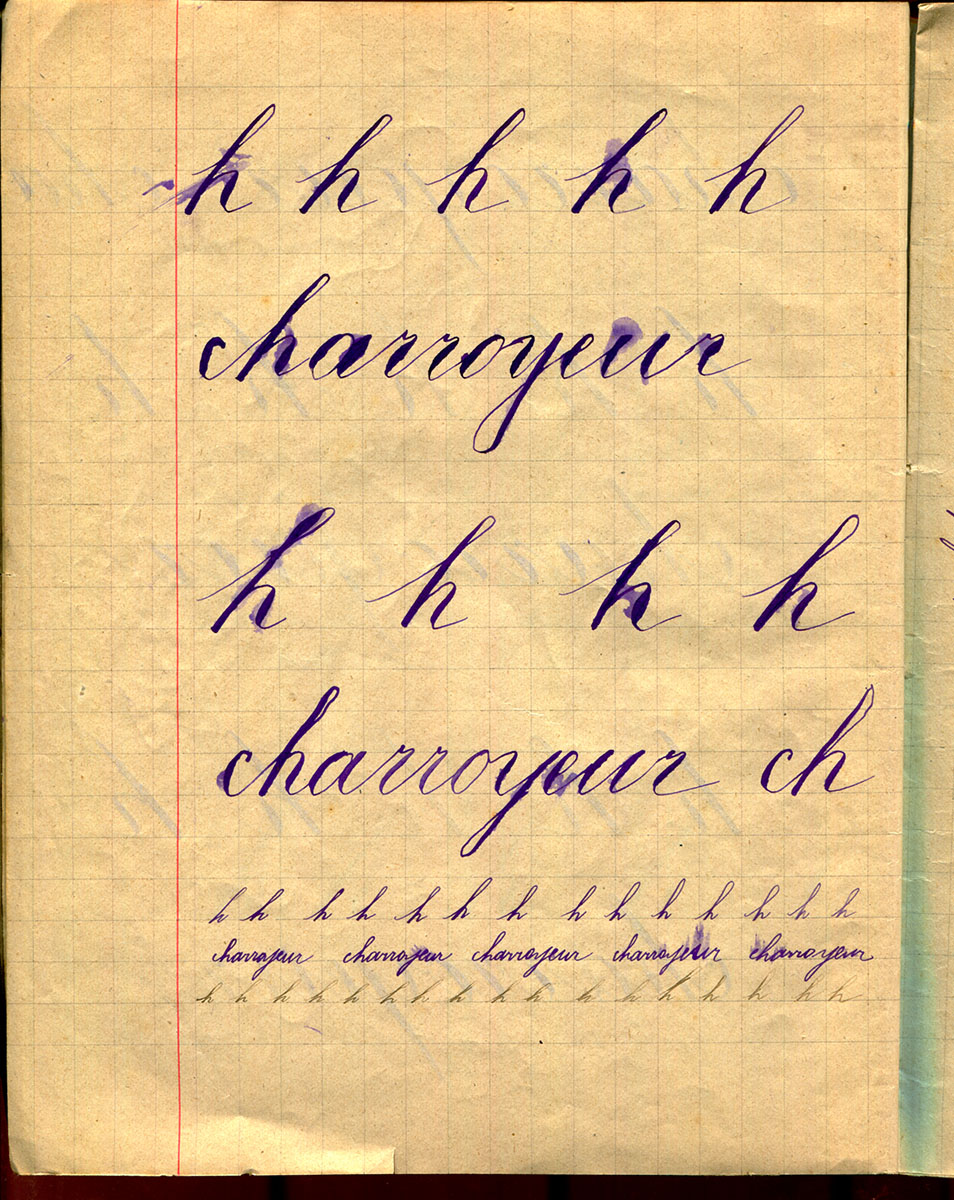 h h h h h
charroyeur
h h h h
charroyeur ch
h h h h h h h h h h h h h h
charroyeur charroyeur charroyeur charroyeur charroyeur
h h h h h h h h h h h h h h h h h